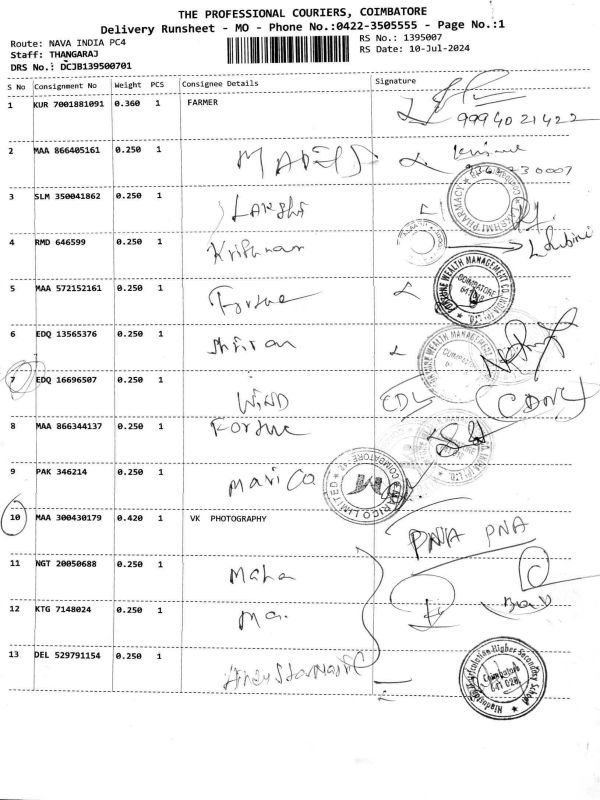 THE PROFESSIONAL COURIERS, COIMBATORE
Delivery Runsheet - MO - Phone No.:0422-3505555 - Page No.:1
Route: NAVA INDIA PC4
RS No.: 1395007
Staff: THANGARAJ
RS Date: 10-Jul-2024
DRS No.: DCJB139500701
S No Consignment No Weight PCS Consignee Details Signature
1 KUR 7001881091 0.360 1 FARMER
9994021422
2 MAA 866405161 0.250 1
3 SLM 350041862 0.250 1 Lakshi
LAKSHMI PHARMACY
4 RMD 646599 0.250 1 Krishnan
5 MAA 572152161 0.250 1 Fortune
FORTUNE WEALTH MANAGEMENT CO. INDIA (P) LTD. COIMBATORE
6 EDQ 13565376 0.250 1
FORTUNE WEALTH MANAGEMENT COIMBATORE
7 EDQ 16696507 0.250 1 WIND
CDL
8 MAA 866344137 0.250 1 Fortune
9 PAK 346214 0.250 1 Marico
MARICO LIMITED COIMBATORE
10 MAA 300430179 0.420 1 VK PHOTOGRAPHY
PNA PNA
11 NGT 20050688 0.250 1 Maha
12 KTG 7148024 0.250 1 Ma.
13 DEL 529791154 0.250 1
Matriculation Higher Secondary School Coimbatore 641 028